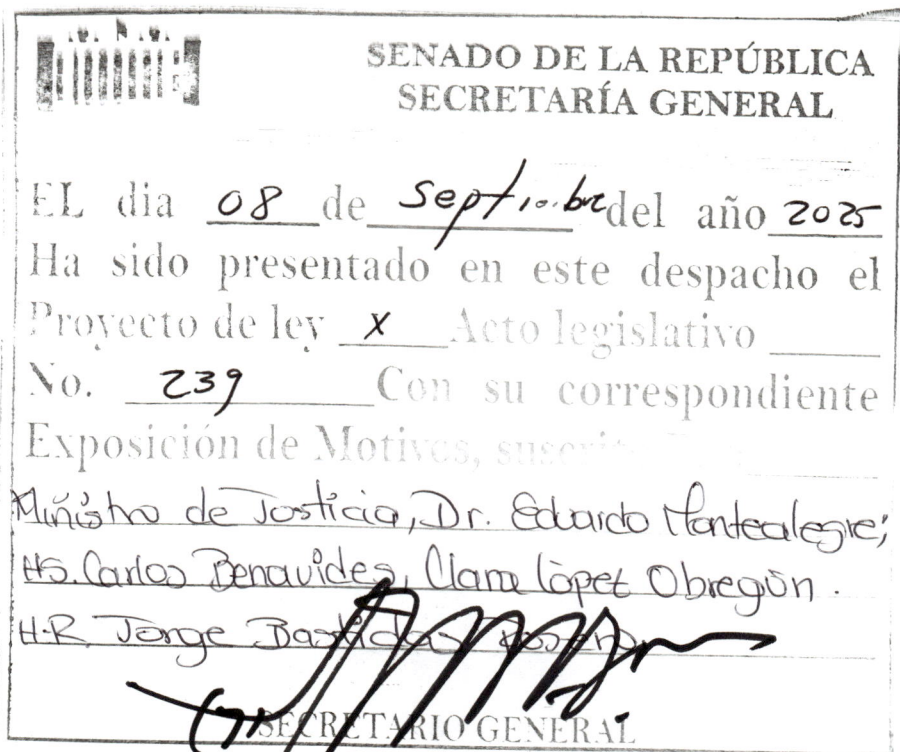 SENADO DE LA REPÚBLICA
SECRETARÍA GENERAL
EL dia 08 de Septiembre del año 2025
Ha sido presentado en este despacho el
Proyecto de ley X Acto legislativo
No. 239 Con su correspondiente
Exposición de Motivos, suscrito
Ministro de Justicia, Dr. Eduardo Montealegre;
HS. Carlos Benavides, Clara López Obregón.
H.R Jorge Bastidas
SECRETARIO GENERAL